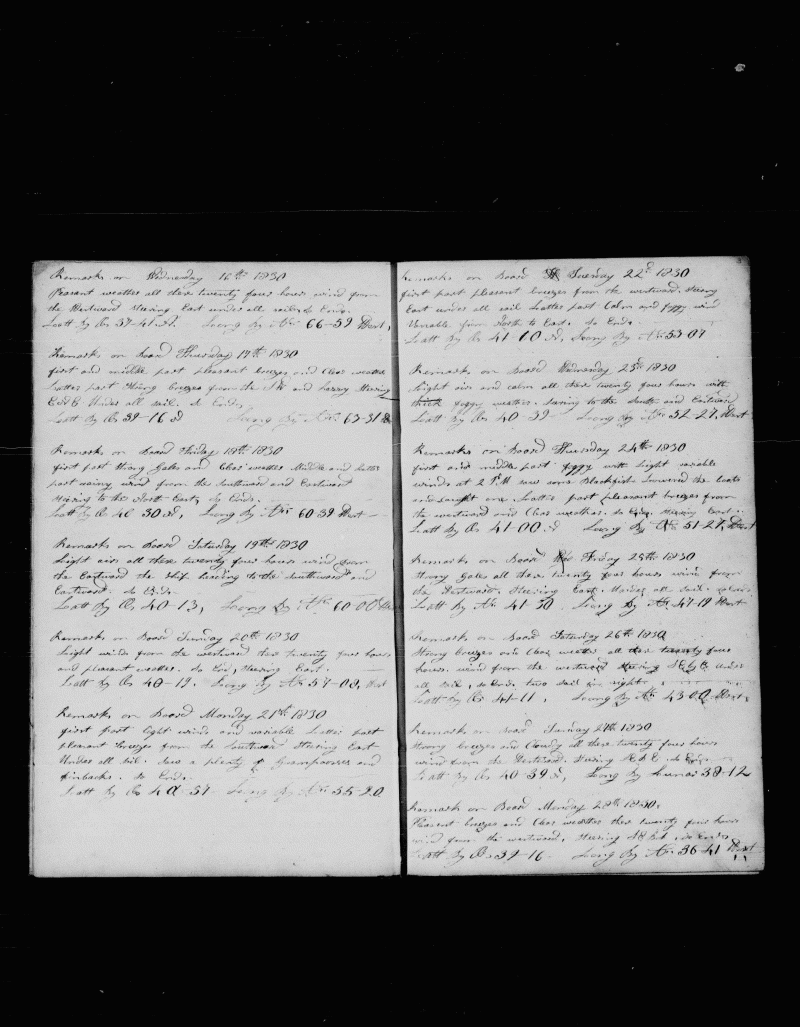 Remarks on Wednesday 16th 1830
Pleasant weather all these twenty four hours wind from
the Westward steering East under all sail. So Ends.
Latt By Obs 39-41. Long By 66-59 West,
Remarks on Board Thursday 17th 1830
first and middle part pleasant breezes and Clear weather
Latter part strong breezes from the SW and hazzy steering
Under all sail. So Ends.
Latt By Obs 39-16 Long By 63-31
Remarks on Board Friday 18th 1830
first part strong Gales and Clear weather Middle and latter
part rainy wind from the Southward and Eastward
steering to the North East, So Ends.
Latt By Obs 40 30 Long By 60 39 West
Remarks on Board Saturday 19th 1830
Light airs all these twenty four hours wind from
the Eastward the Ship heading to the southward and
Eastward. So Ends
Latt By Ob 40-13, Long By 60-00
Remarks on Board Sunday 20th 1830
Light winds from the westward these twenty four hours
and pleasant weather. So End, steering East.
Latt By Obs 40-19. Long By 57-08, West
Remarks on Board Monday 21st 1830
first part light winds and variable Latter part
pleasant breezes from the Southward Steering East
Under all Sail. Saw a plenty of Grampusses and
finbacks. So Ends.
Latt By Obs 40-57 Long By 55-20
Remarks on Board Tuesday 22d 1830
first part pleasant breezes from the westward. steering
East under all sail Latter part Calm and foggy wind
Variable from North to East. So Ends.
Latt By Ob 41-00 Long By 53 07
Remarks on Board Wednesday 23d 1830
Light airs and calm all these twenty four hours with
thick foggy weather. to the South and Eastward
Latt By Obs 40-39 Long By 52-27, West
Remarks on Board Thursday 24th 1830
first and middle part foggy with Light variable
winds at 2 PM saw some Blackfish Lowered the boats
and caught one Latter part pleasant breezes from
the westward and Clear weather. So Ends. steering East
Latt By Obs 41-00 Long By 51-27, West
Remarks on Board Friday 25th 1830
Strong Gales all these twenty four hours wind from
the Westward. Steering East. Under all sail.
Latt By 41 30 Long By 47-19 West
Remarks on Board Saturday 26th 1830
Strong breezes and Clear weather all these twenty four
hours. wind from the westward steering Under
all Sail, So Ends two sail in sight
Latt By Obs 41-11, Long By 43-00 West,
Remarks on Board Sunday 27th 1830
Strong breezes and Cloudy all these twenty four hours
wind from the Westward. steering So Ends
Latt By Ob 40-39 Long By Lunar 38-12
Remarks on Board Monday 28th 1830.
Pleasant breezes and Clear weather these twenty four hours
wind from the westward, Steering So Ends
Latt By Ob 39-16 Long By 36-41 West